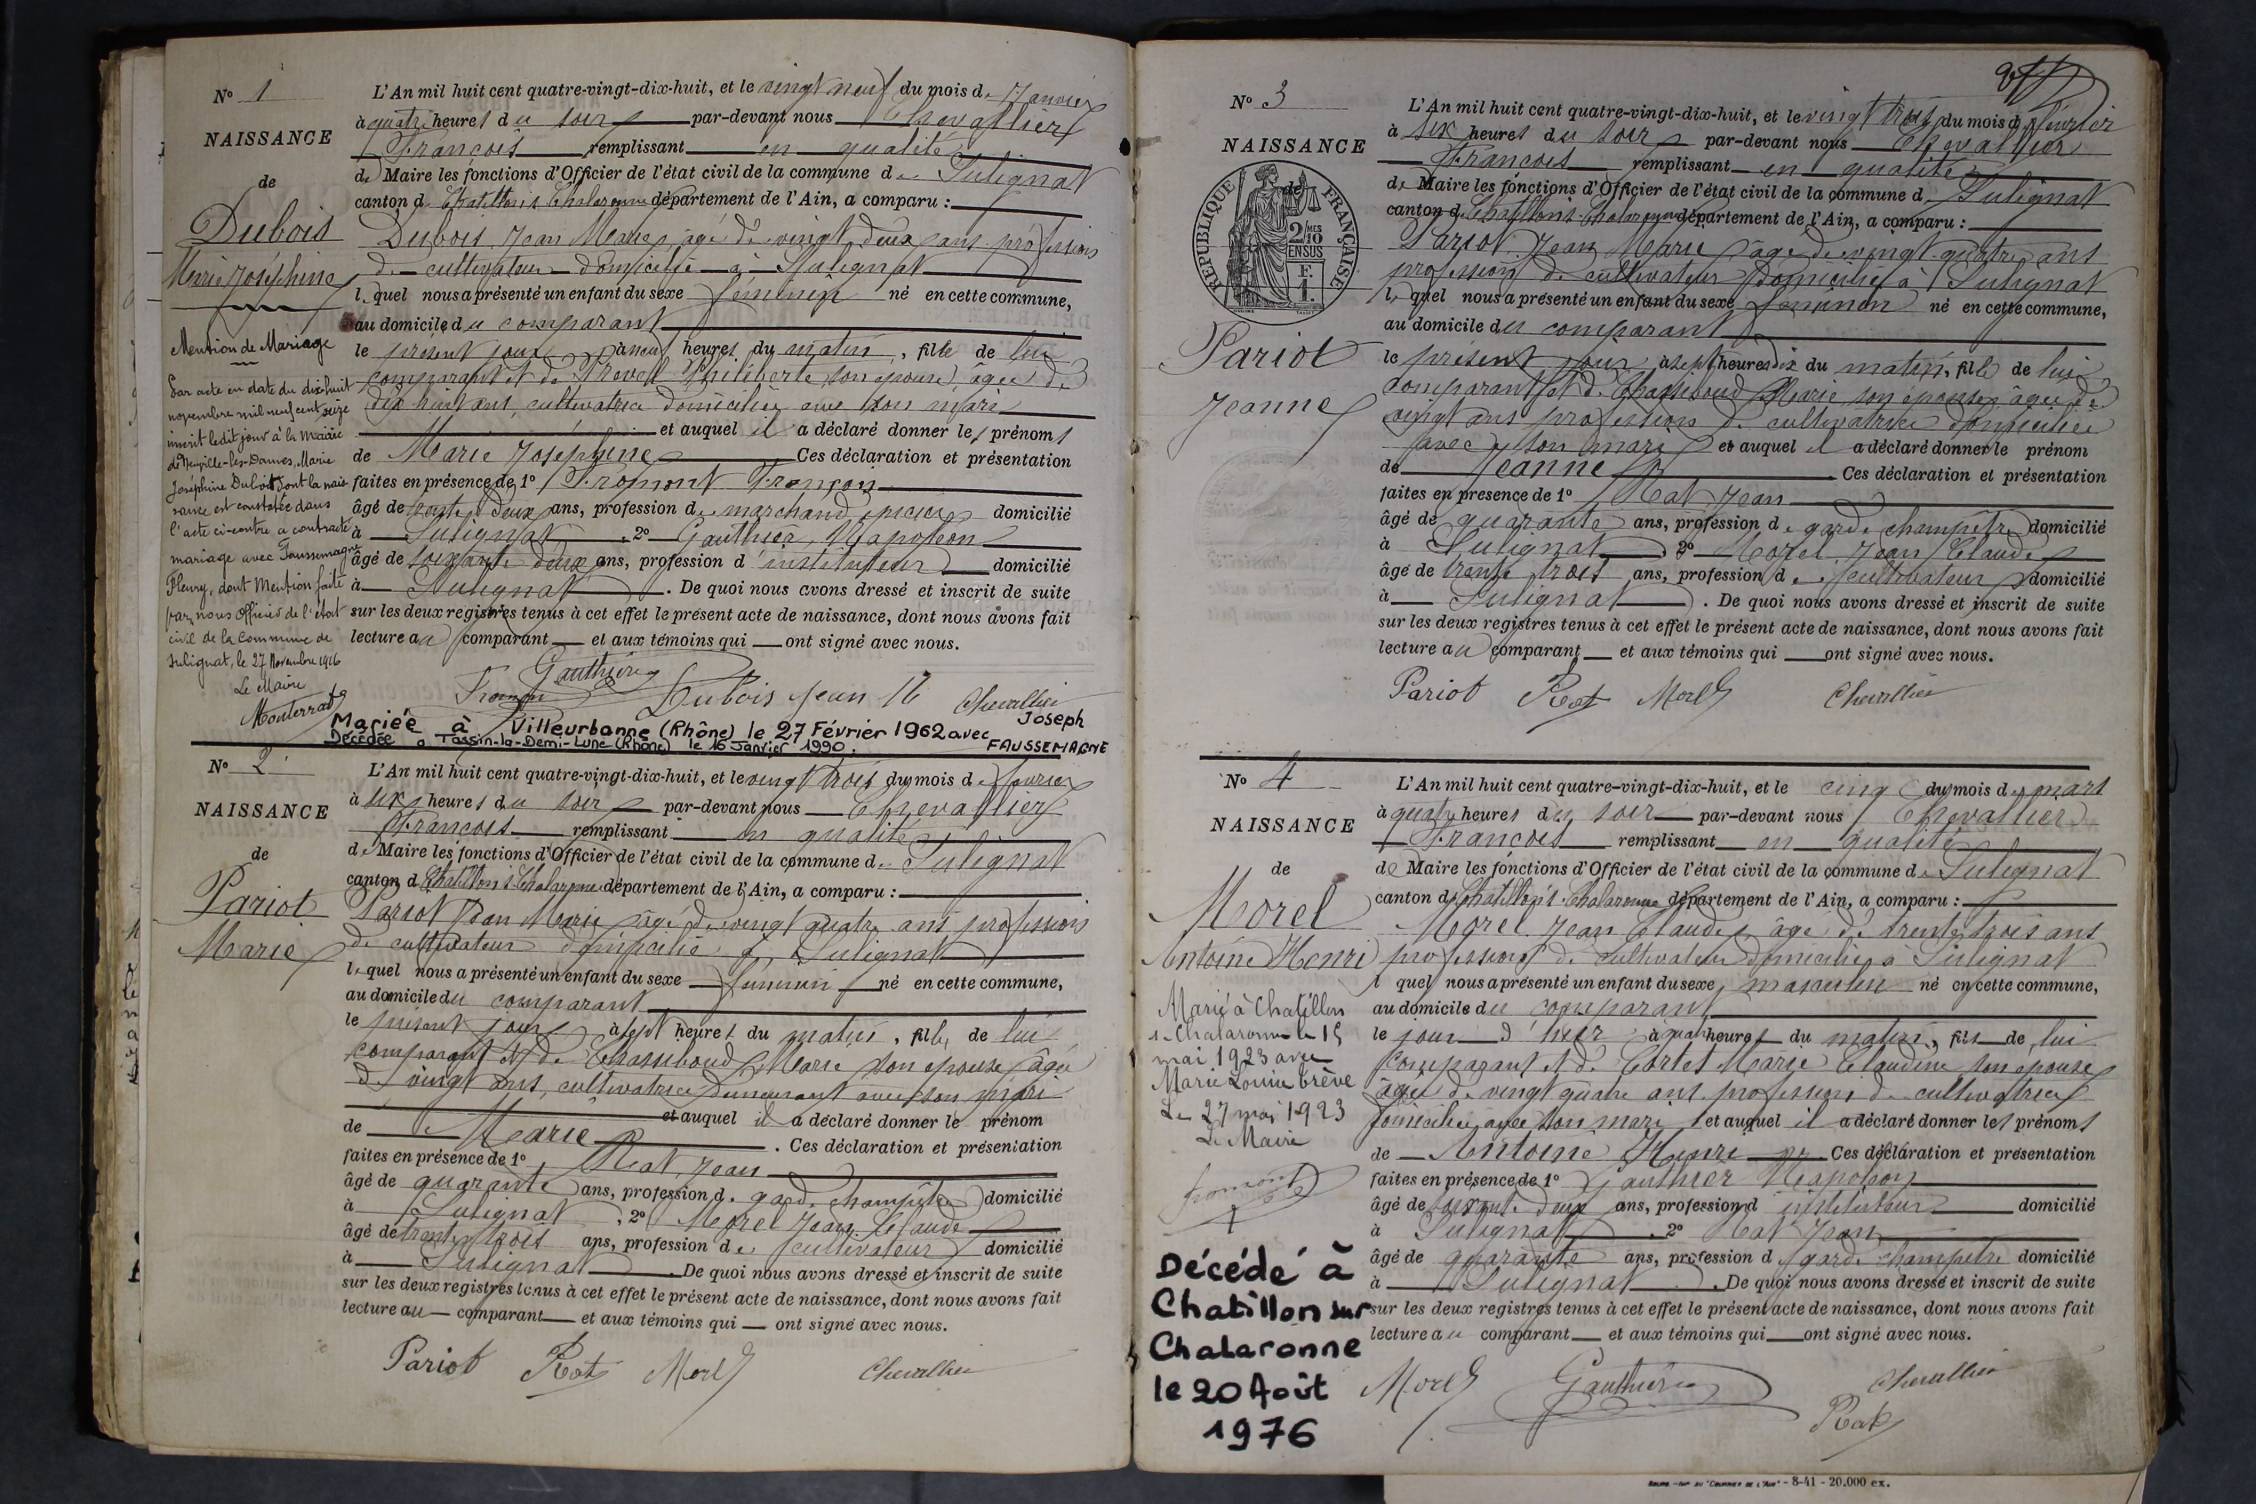 N° 1
NAISSANCE
de
Dubois
Marie Joséphine
Mention de Mariage
Par acte en date du dix huit
novembre mil neuf cent seize
inscrit ledit jour à la Mairie
de Neuville-les-Dames, Marie
Joséphine Dubois dont la nais
sance est constatée dans
l'acte ci-contre a contracté
mariage avec Faussemagne
Fleury, dont Mention faite
par nous Officier de l'état
civil de la Commune de
Sulignat, le 27 Novembre 1916
Le Maire
Monterrat
L'An mil huit cent quatre-vingt-dix-huit, et le vingt neuf du mois de Janvier
à quatre heures du soir par-devant nous Chevallier
François remplissant en qualité
de Maire les fonctions d'Officier de l'état civil de la commune de Sulignat
canton de Chatillon s Chalaronne département de l'Ain, a comparu :
Dubois Jean Marie, âgé de vingt deux ans profession
de cultivateur domicilié à Sulignat
lequel nous a présenté un enfant du sexe féminin né en cette commune,
au domicile du comparant
le présent jour à neuf heures du matin, fille de lui
comparant et de Philiberte son épouse, âgée de
dix huit ans, cultivatrice domiciliée avec son mari
et auquel il a déclaré donner les prénoms
de Marie Joséphine Ces déclaration et présentation
faites en présence de 1° Fromont François
âgé de trente deux ans, profession de marchand épicier domicilié
à Sulignat, 2° Gauthier Napoléon
âgé de soixante deux ans, profession d'instituteur domicilié
à Sulignat. De quoi nous avons dressé et inscrit de suite
sur les deux registres tenus à cet effet le présent acte de naissance, dont nous avons fait
lecture au comparant et aux témoins qui ont signé avec nous.
Gauthier
Fromont Dubois Jean M Chevallier
Mariée à Villeurbanne (Rhône) le 27 Février 1962 avec Joseph
FAUSSEMAGNE
Décédée à Tassin-la-Demi-Lune (Rhône) le 16 Janvier 1990.
N° 2
NAISSANCE
de
Pariot
Marie
L'An mil huit cent quatre-vingt-dix-huit, et le vingt trois du mois de février
à six heures du soir par-devant nous Chevallier
François remplissant en qualité
de Maire les fonctions d'Officier de l'état civil de la commune de Sulignat
canton de Chatillon s Chalaronne département de l'Ain, a comparu :
Pariot Jean Marie âgé de vingt quatre ans profession
de cultivateur domicilié à Sulignat
lequel nous a présenté un enfant du sexe féminin né en cette commune,
au domicile du comparant
le présent jour à sept heures du matin, fille de lui
comparant et de Chassiboud Marie son épouse âgée
de vingt ans, cultivatrice demeurant avec son mari
et auquel il a déclaré donner le prénom
de Marie. Ces déclaration et présentation
faites en présence de 1° Rat Jean
âgé de quarante ans, profession de garde champêtre domicilié
à Sulignat, 2° Morel Jean Claude
âgé de trente trois ans, profession de cultivateur domicilié
à Sulignat. De quoi nous avons dressé et inscrit de suite
sur les deux registres tenus à cet effet le présent acte de naissance, dont nous avons fait
lecture au comparant et aux témoins qui ont signé avec nous.
Pariot Rat Morel Chevallier
N° 3
NAISSANCE
de
REPUBLIQUE FRANÇAISE
2/10 MES
EN SUS
F.
1.
Pariot
Jeanne
L'An mil huit cent quatre-vingt-dix-huit, et le vingt trois du mois de février
à six heures du soir par-devant nous Chevallier
François remplissant en qualité
de Maire les fonctions d'Officier de l'état civil de la commune de Sulignat
canton de Chatillon s Chalaronne département de l'Ain, a comparu :
Pariot Jean Marie âgé de vingt quatre ans
profession de cultivateur domicilié à Sulignat
lequel nous a présenté un enfant du sexe féminin né en cette commune,
au domicile du comparant
le présent jour à sept heures dix du matin, fille de lui
comparant et de Chassiboud Marie son épouse âgée de
vingt ans profession de cultivatrice domiciliée
avec son mari et auquel il a déclaré donner le prénom
de Jeanne. Ces déclaration et présentation
faites en présence de 1° Rat Jean
âgé de quarante ans, profession de garde champêtre domicilié
à Sulignat, 2° Morel Jean Claude
âgé de trente trois ans, profession de cultivateur domicilié
à Sulignat. De quoi nous avons dressé et inscrit de suite
sur les deux registres tenus à cet effet le présent acte de naissance, dont nous avons fait
lecture au comparant et aux témoins qui ont signé avec nous.
Pariot Rat Morel Chevallier
N° 4
NAISSANCE
de
Morel
Antoine Henri
Marié à Chatillon
s. Chalaronne le 15
mai 1923 avec
Marie Louise Crève
Le 27 mai 1923
Le Maire
Fromont
Décédé à
Chatillon sur
Chalaronne
le 20 Août
1976
L'An mil huit cent quatre-vingt-dix-huit, et le cinq du mois de mars
à quatre heures du soir par-devant nous Chevallier
François remplissant en qualité
de Maire les fonctions d'Officier de l'état civil de la commune de Sulignat
canton de Chatillon s Chalaronne département de l'Ain, a comparu :
Morel Jean Claude, âgé de trente trois ans
profession de cultivateur domicilié à Sulignat
lequel nous a présenté un enfant du sexe masculin né en cette commune,
au domicile du comparant
le jour d'hier à quatre heures du matin, fils de lui
comparant et de Cortet Marie Claudine son épouse
âgée de vingt quatre ans profession de cultivatrice
domiciliée avec son mari et auquel il a déclaré donner les prénoms
de Antoine Henri Ces déclaration et présentation
faites en présence de 1° Gauthier Napoléon
âgé de soixante deux ans, profession d'instituteur domicilié
à Sulignat. 2° Rat Jean
âgé de quarante ans, profession de garde champêtre domicilié
à Sulignat. De quoi nous avons dressé et inscrit de suite
sur les deux registres tenus à cet effet le présent acte de naissance, dont nous avons fait
lecture au comparant et aux témoins qui ont signé avec nous.
Morel Gauthier Chevallier
Rat
8-41 - 20.000 ex.